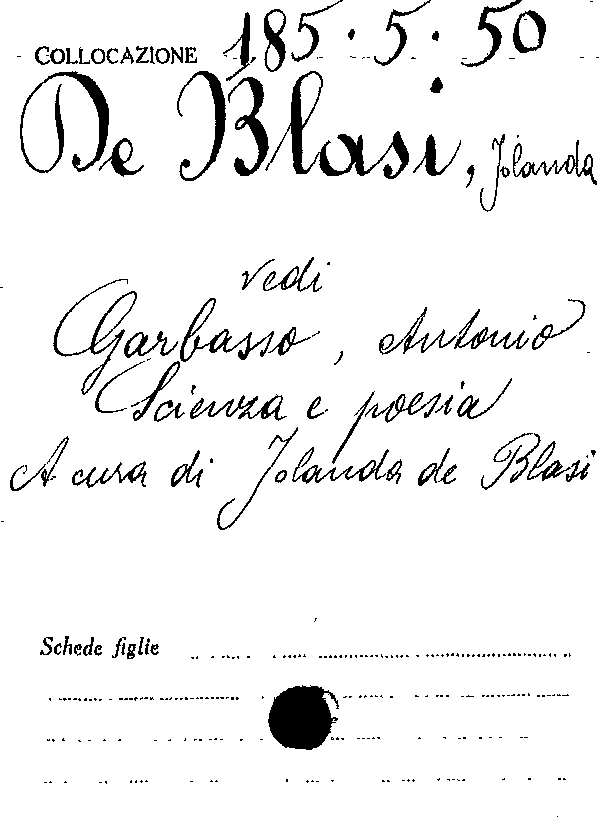 COLLOCAZIONE 185.5.50
De Blasi, Jolanda
vedi
Garbasso, Antonio
Scienza e poesia
A cura di Jolanda de Blasi
Schede figlie